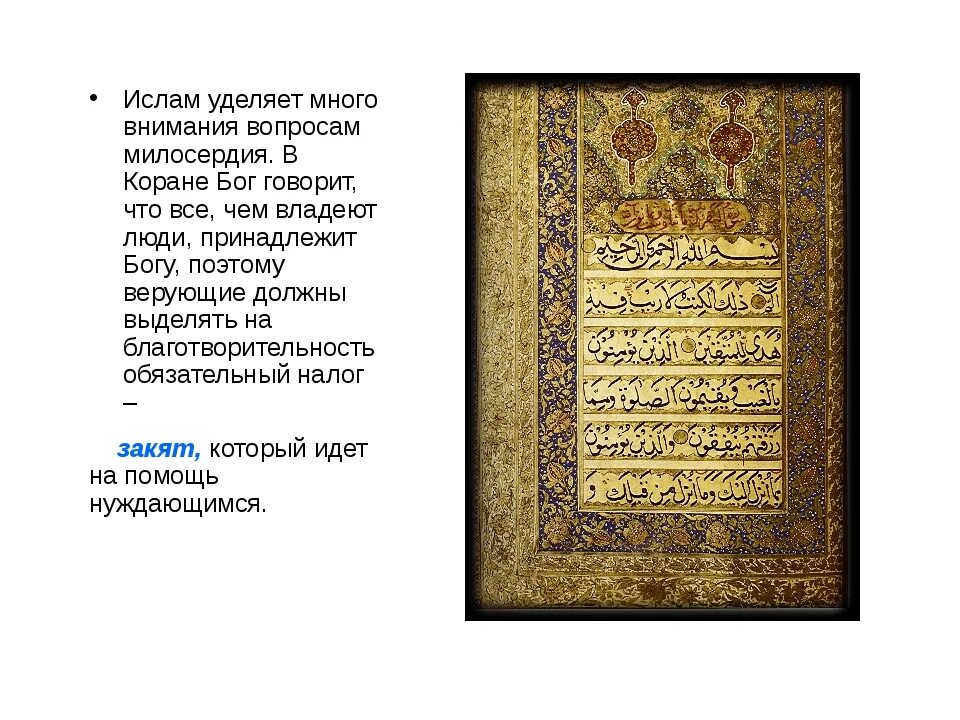 • Ислам уделяет много
внимания вопросам
милосердия. В
Коране Бог говорит,
что все, чем владеют
люди, принадлежит
Богу, поэтому
верующие должны
выделять на
благотворительность
обязательный налог
–
закят, который идет
на помощь
нуждающимся.
بسم الله الرحمن الرحيم
الم ذلك الكتب لا ريب فيه
هدى للمتقين الذين يؤمنون
بالغيب ويقيمون الصلوة ومما
رزقنهم ينفقون والذين يؤمنون
بما انزل اليك وما انزل من قبلك و